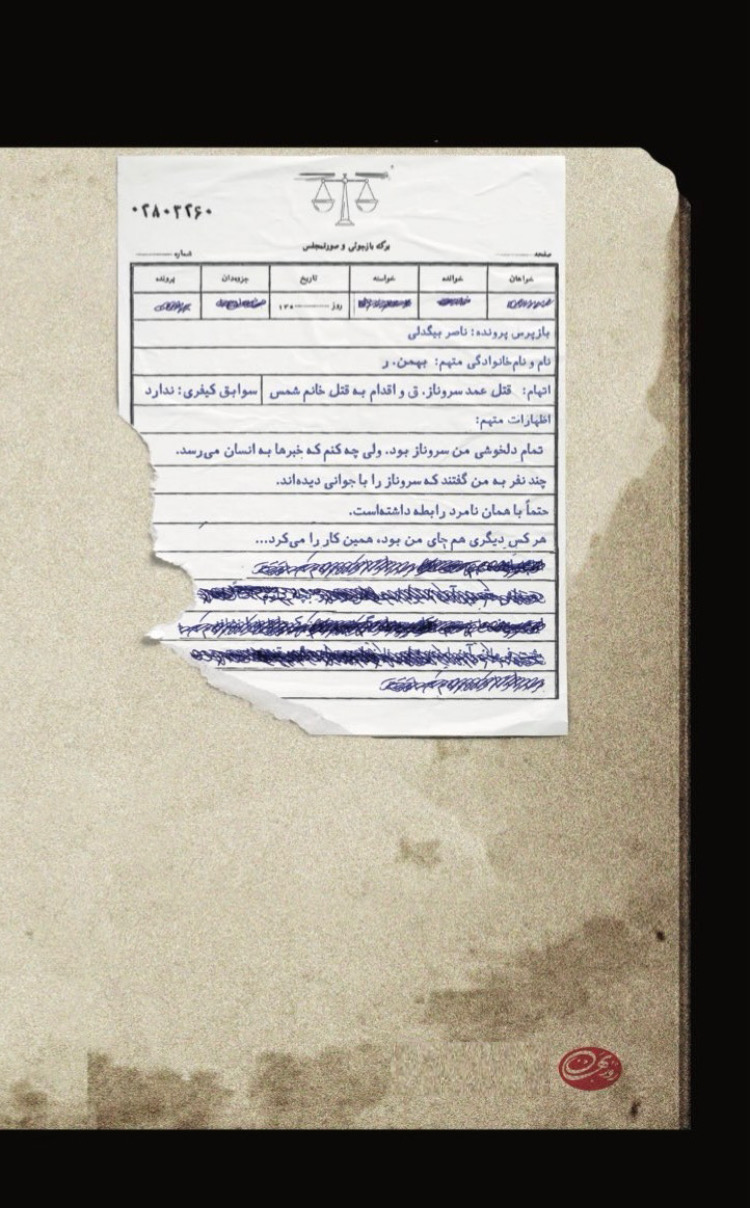 ۰۲۸۰۳۲۶۰
برگه بازجوئی و صورتمجلس
صفحه شماره
خواهان خوانده خواسته تاریخ جزوه‌دان پرونده
روز ۱۳۸
بازپرس پرونده: ناصر بیگدلی
نام و نام‌خانوادگی متهم: بهمن. ر
اتهام: قتل عمد سروناز. ق و اقدام به قتل خانم شمس سوابق کیفری: ندارد
اظهارات متهم:
تمام دلخوشی من سروناز بود. ولی چه کنم که خبرها به انسان می‌رسد.
چند نفر به من گفتند که سروناز را با جوانی دیده‌اند.
حتماً با همان نامرد رابطه داشته‌است.
هر کس دیگری هم جای من بود، همین کار را می‌کرد...
روزبهان